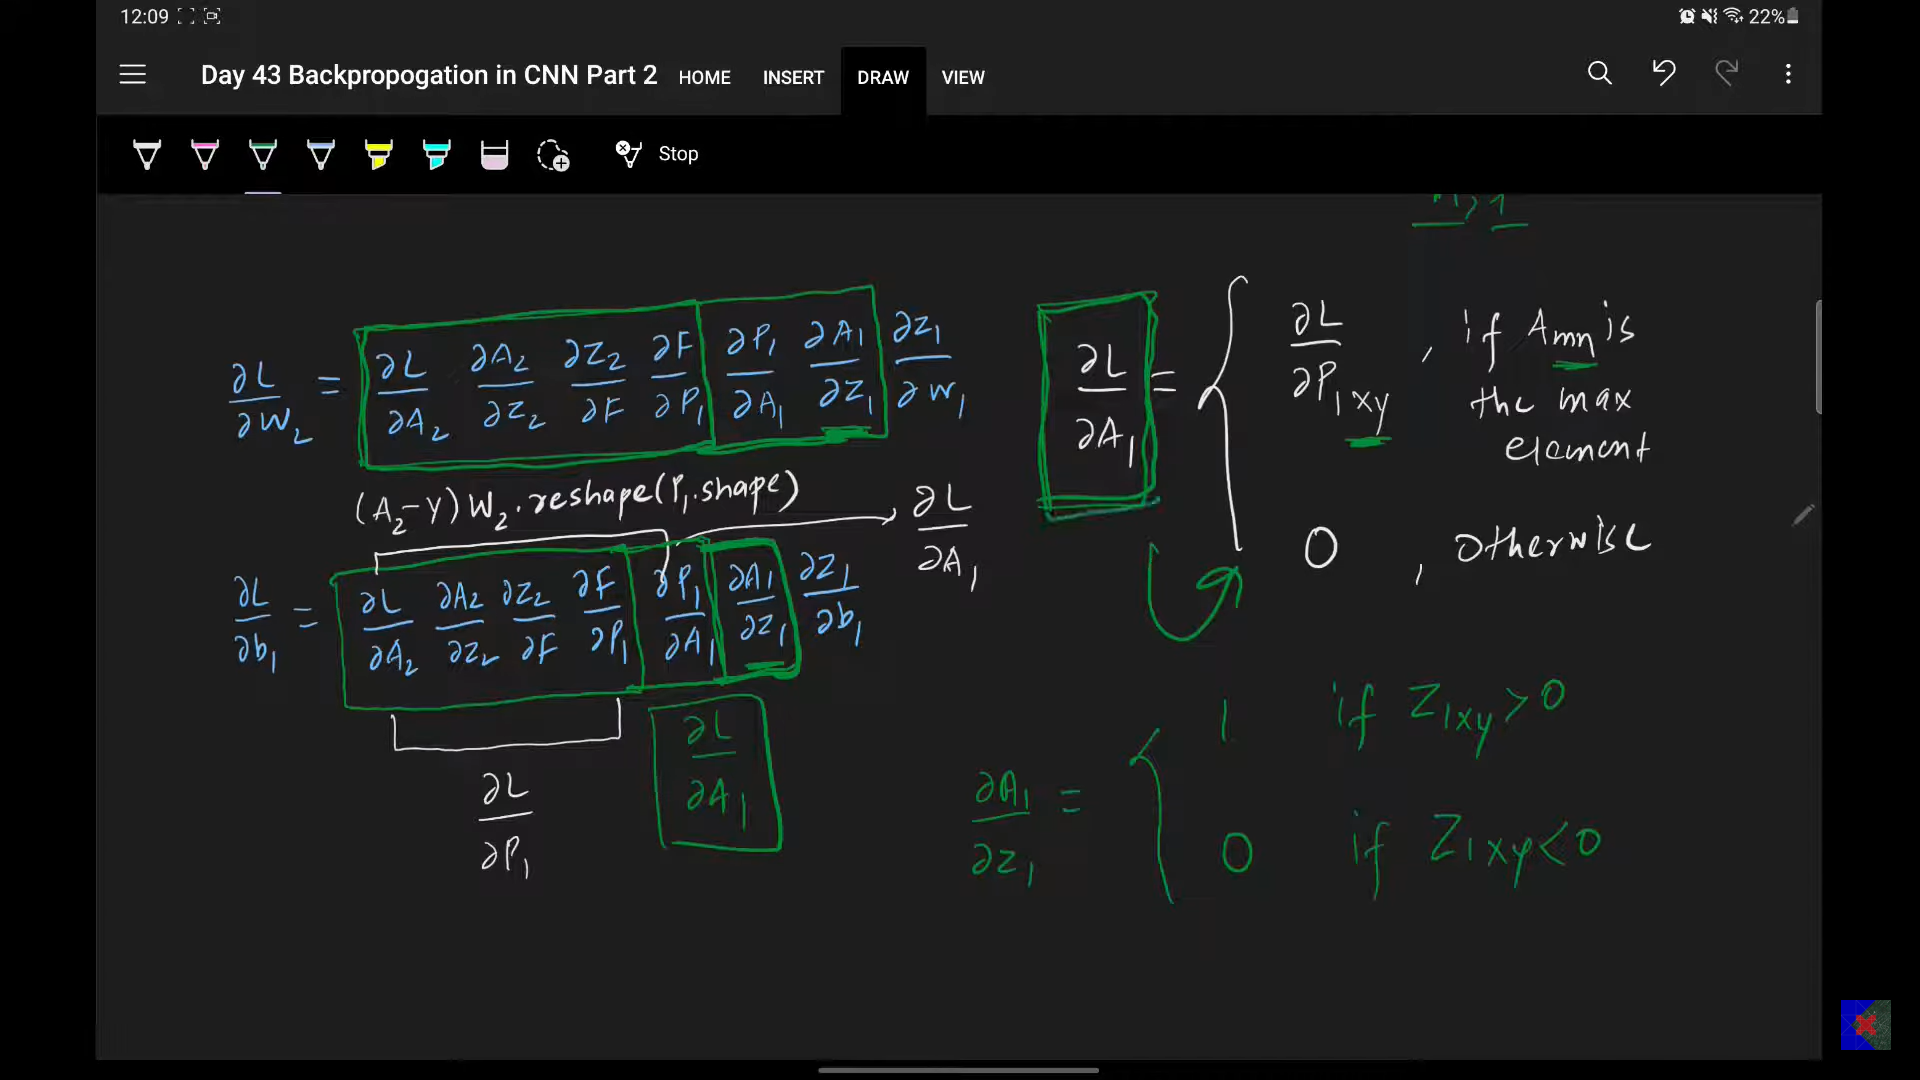 12:09 22%
Day 43 Backpropogation in CNN Part 2 HOME INSERT DRAW VIEW
Stop
∂L/∂W₂ = ∂L/∂A₂ ∂A₂/∂Z₂ ∂Z₂/∂F ∂F/∂P₁ ∂P₁/∂A₁ ∂A₁/∂Z₁ ∂Z₁/∂W₁
(A₂-Y)W₂.reshape(P₁.shape)
∂L/∂A₁
∂L/∂b₁ = ∂L/∂A₂ ∂A₂/∂Z₂ ∂Z₂/∂F ∂F/∂P₁ ∂P₁/∂A₁ ∂A₁/∂Z₁ ∂Z₁/∂b₁
∂L/∂P₁
∂L/∂A₁
∂L/∂A₁ = { ∂L/∂P₁xy , if Amn is
the max
element
0 , otherwise
∂A₁/∂Z₁ = { 1 if Z₁xy>0
0 if Z₁xy<0